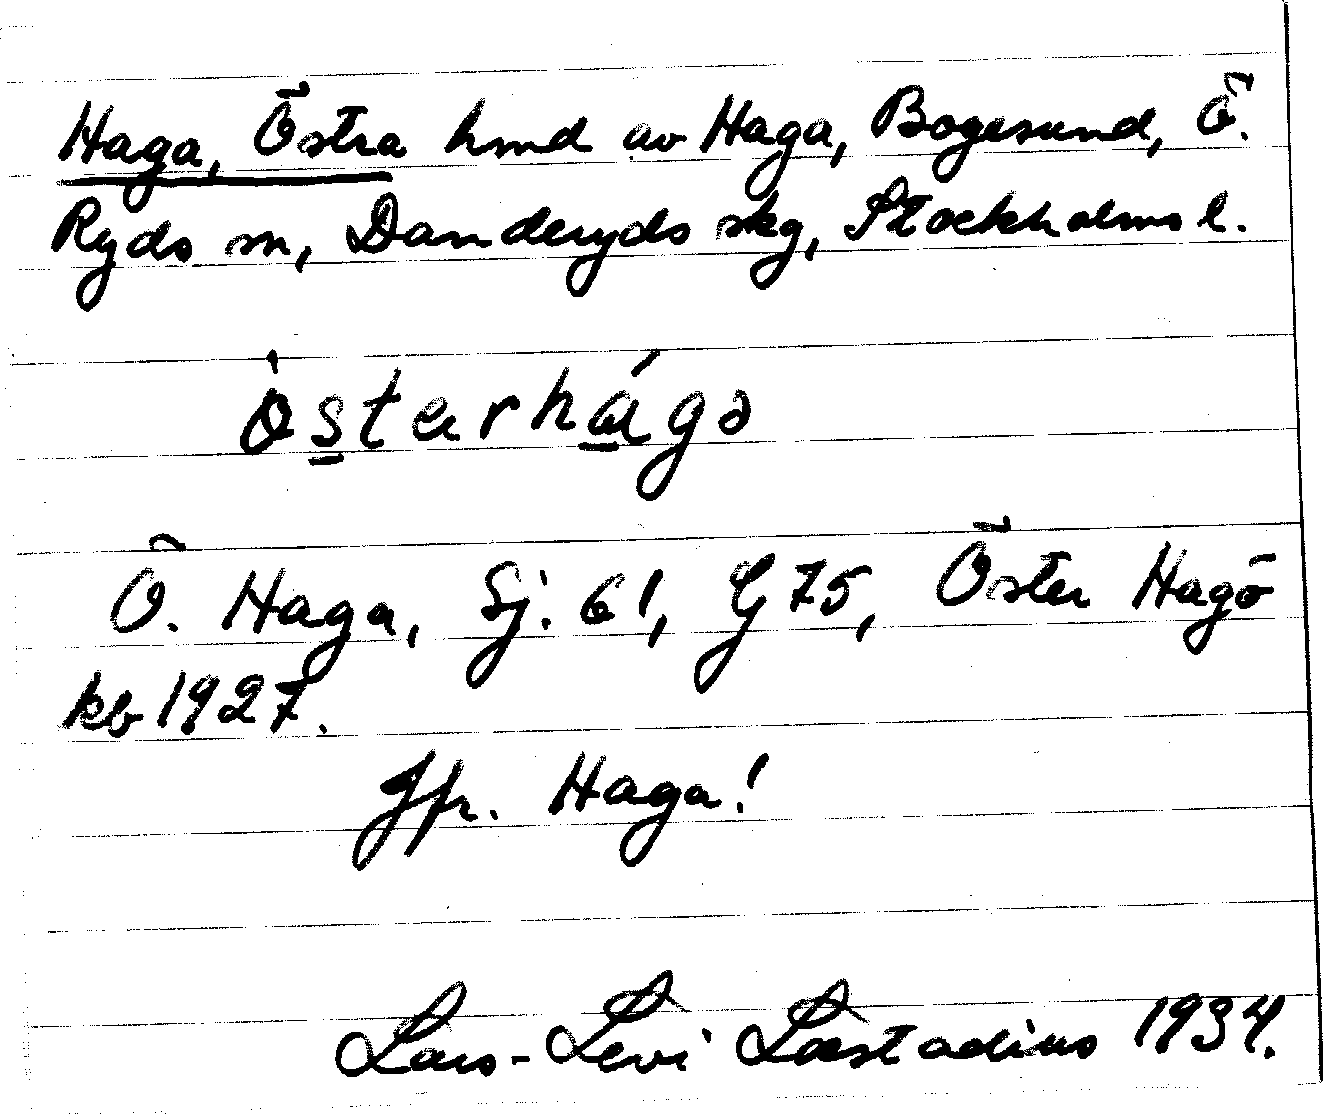 Haga, Östra hmd av Haga, Bogesund, Ö.
Ryds sn, Danderyds skg, Stockholms l.
ò̀starhágə
Ö. Haga, Sj. 61, G 75, Öster Haga
kb 1927.
Jfr. Haga!
Lars-Levi Læstadius 1934.